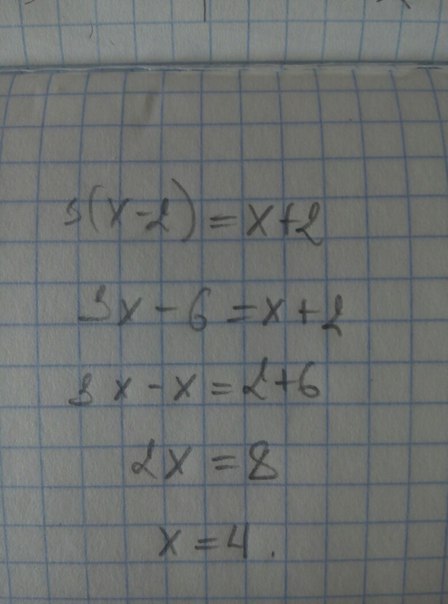 3(x-2)=x+2
3x-6=x+2
3x-x=2+6
2x=8
x=4.